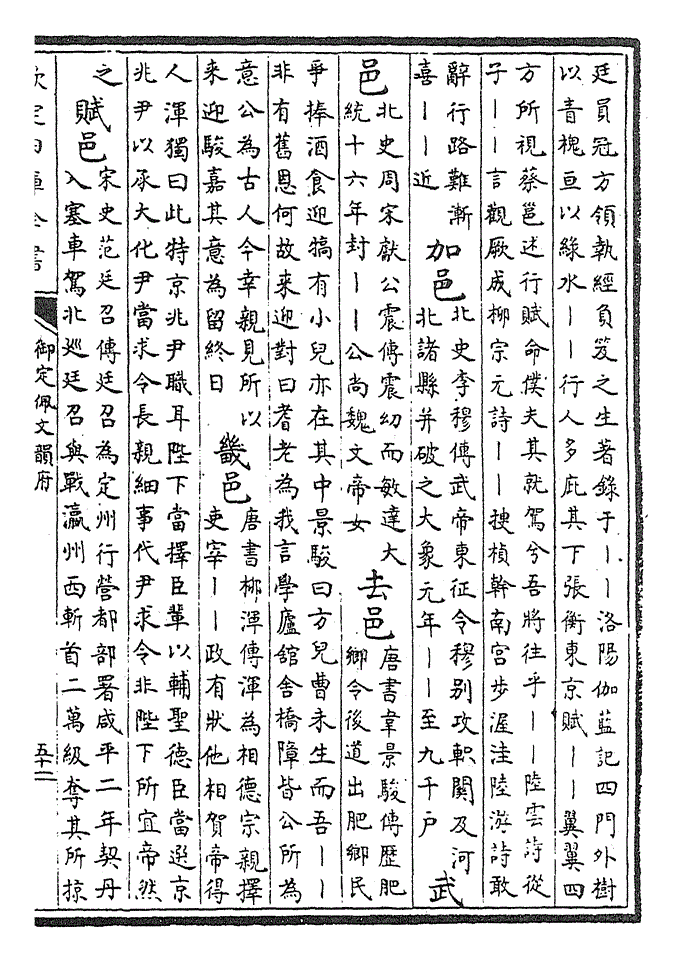 廷員冠方領執經負笈之生著錄于｜｜洛陽伽藍記四門外樹
以青槐亘以綠水｜｜行人多庇其下張衡東京賦｜｜翼翼四
方所視蔡邕述行賦命僕夫其就駕兮吾將往乎｜｜陸雲詩從
子｜｜言觀厥成柳宗元詩｜｜搜楨幹南宮步渥洼陸游詩敢
辭行路難漸
喜｜｜近
加邑
北史李穆傳武帝東征令穆别攻軹關及河
北諸縣并破之大象元年｜｜至九千戶
武
邑
北史周宋獻公震傳震幼而敏達大
統十六年封｜｜公尚魏文帝女
去邑
唐書韋景駿傳歷肥
鄉令後道出肥鄉民
爭捧酒食迎犒有小兒亦在其中景駿曰方兒曹未生而吾｜｜
非有舊恩何故來迎對曰耆老為我言學廬舘舍橋障皆公所為
意公為古人今幸親見所以
來迎駿嘉其意為留終日
畿邑
唐書栁渾傳渾為相德宗親擇
吏宰｜｜政有狀他相賀帝得
人渾獨曰此特京兆尹職耳陛下當擇臣輩以輔聖德臣當選京
兆尹以承大化尹當求令長親細事代尹求令非陛下所宜帝然
之
賦邑
宋史范廷召傳廷召為定州行營都部署咸平二年契丹
入塞車駕北廵廷召與戰瀛州西斬首二萬級奪其所掠
欽定四庫全書
御定佩文韻府
五十二